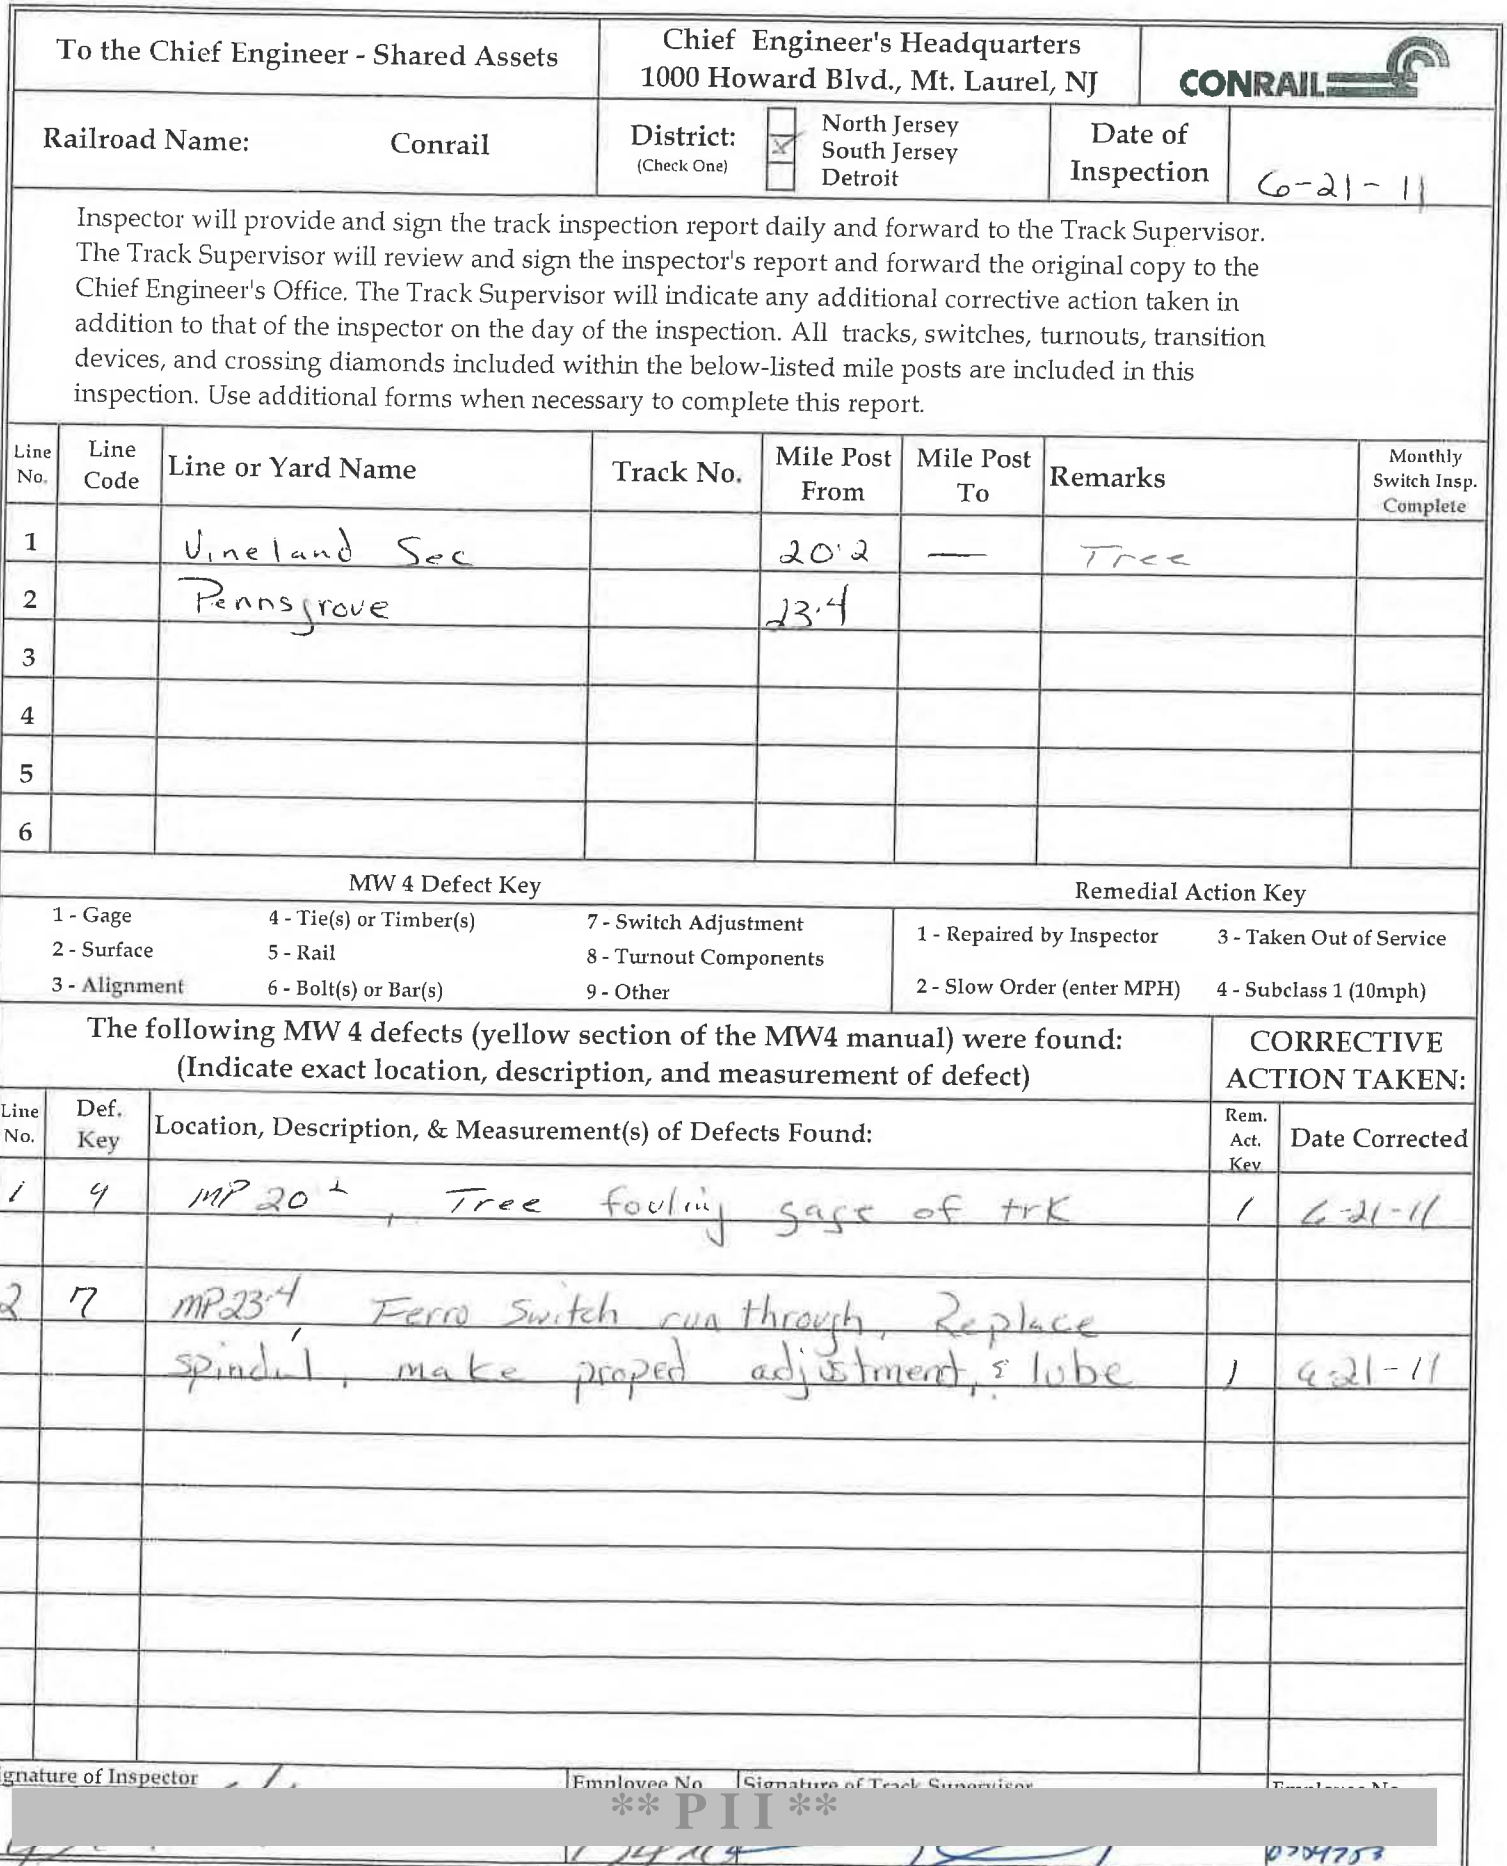 To the Chief Engineer - Shared Assets
Chief Engineer's Headquarters
1000 Howard Blvd., Mt. Laurel, NJ
CONRAIL
Railroad Name: Conrail
District:
(Check One)
North Jersey
South Jersey
Detroit
Date of
Inspection
6-21-11
Inspector will provide and sign the track inspection report daily and forward to the Track Supervisor.
The Track Supervisor will review and sign the inspector's report and forward the original copy to the
Chief Engineer's Office. The Track Supervisor will indicate any additional corrective action taken in
addition to that of the inspector on the day of the inspection. All tracks, switches, turnouts, transition
devices, and crossing diamonds included within the below-listed mile posts are included in this
inspection. Use additional forms when necessary to complete this report.
Line No. Line Code Line or Yard Name Track No. Mile Post From Mile Post To Remarks Monthly Switch Insp. Complete
1 Vineland Sec 20.2 — Tree
2 Pennsgrove 23.4
3
4
5
6
MW 4 Defect Key
1 - Gage 4 - Tie(s) or Timber(s) 7 - Switch Adjustment
2 - Surface 5 - Rail 8 - Turnout Components
3 - Alignment 6 - Bolt(s) or Bar(s) 9 - Other
Remedial Action Key
1 - Repaired by Inspector 3 - Taken Out of Service
2 - Slow Order (enter MPH) 4 - Subclass 1 (10mph)
The following MW 4 defects (yellow section of the MW4 manual) were found:
(Indicate exact location, description, and measurement of defect)
CORRECTIVE
ACTION TAKEN:
Line No. Def. Key Location, Description, & Measurement(s) of Defects Found: Rem. Act. Key Date Corrected
1 9 MP 20.2, Tree fouling gage of trk 1 6-21-11
2 7 MP23.4, Ferro Switch run through, Replace
spindul, make proped adjustment, & lube 1 6-21-11
ignature of Inspector Employee No Signature of Track Supervisor Employee No
** P I I **